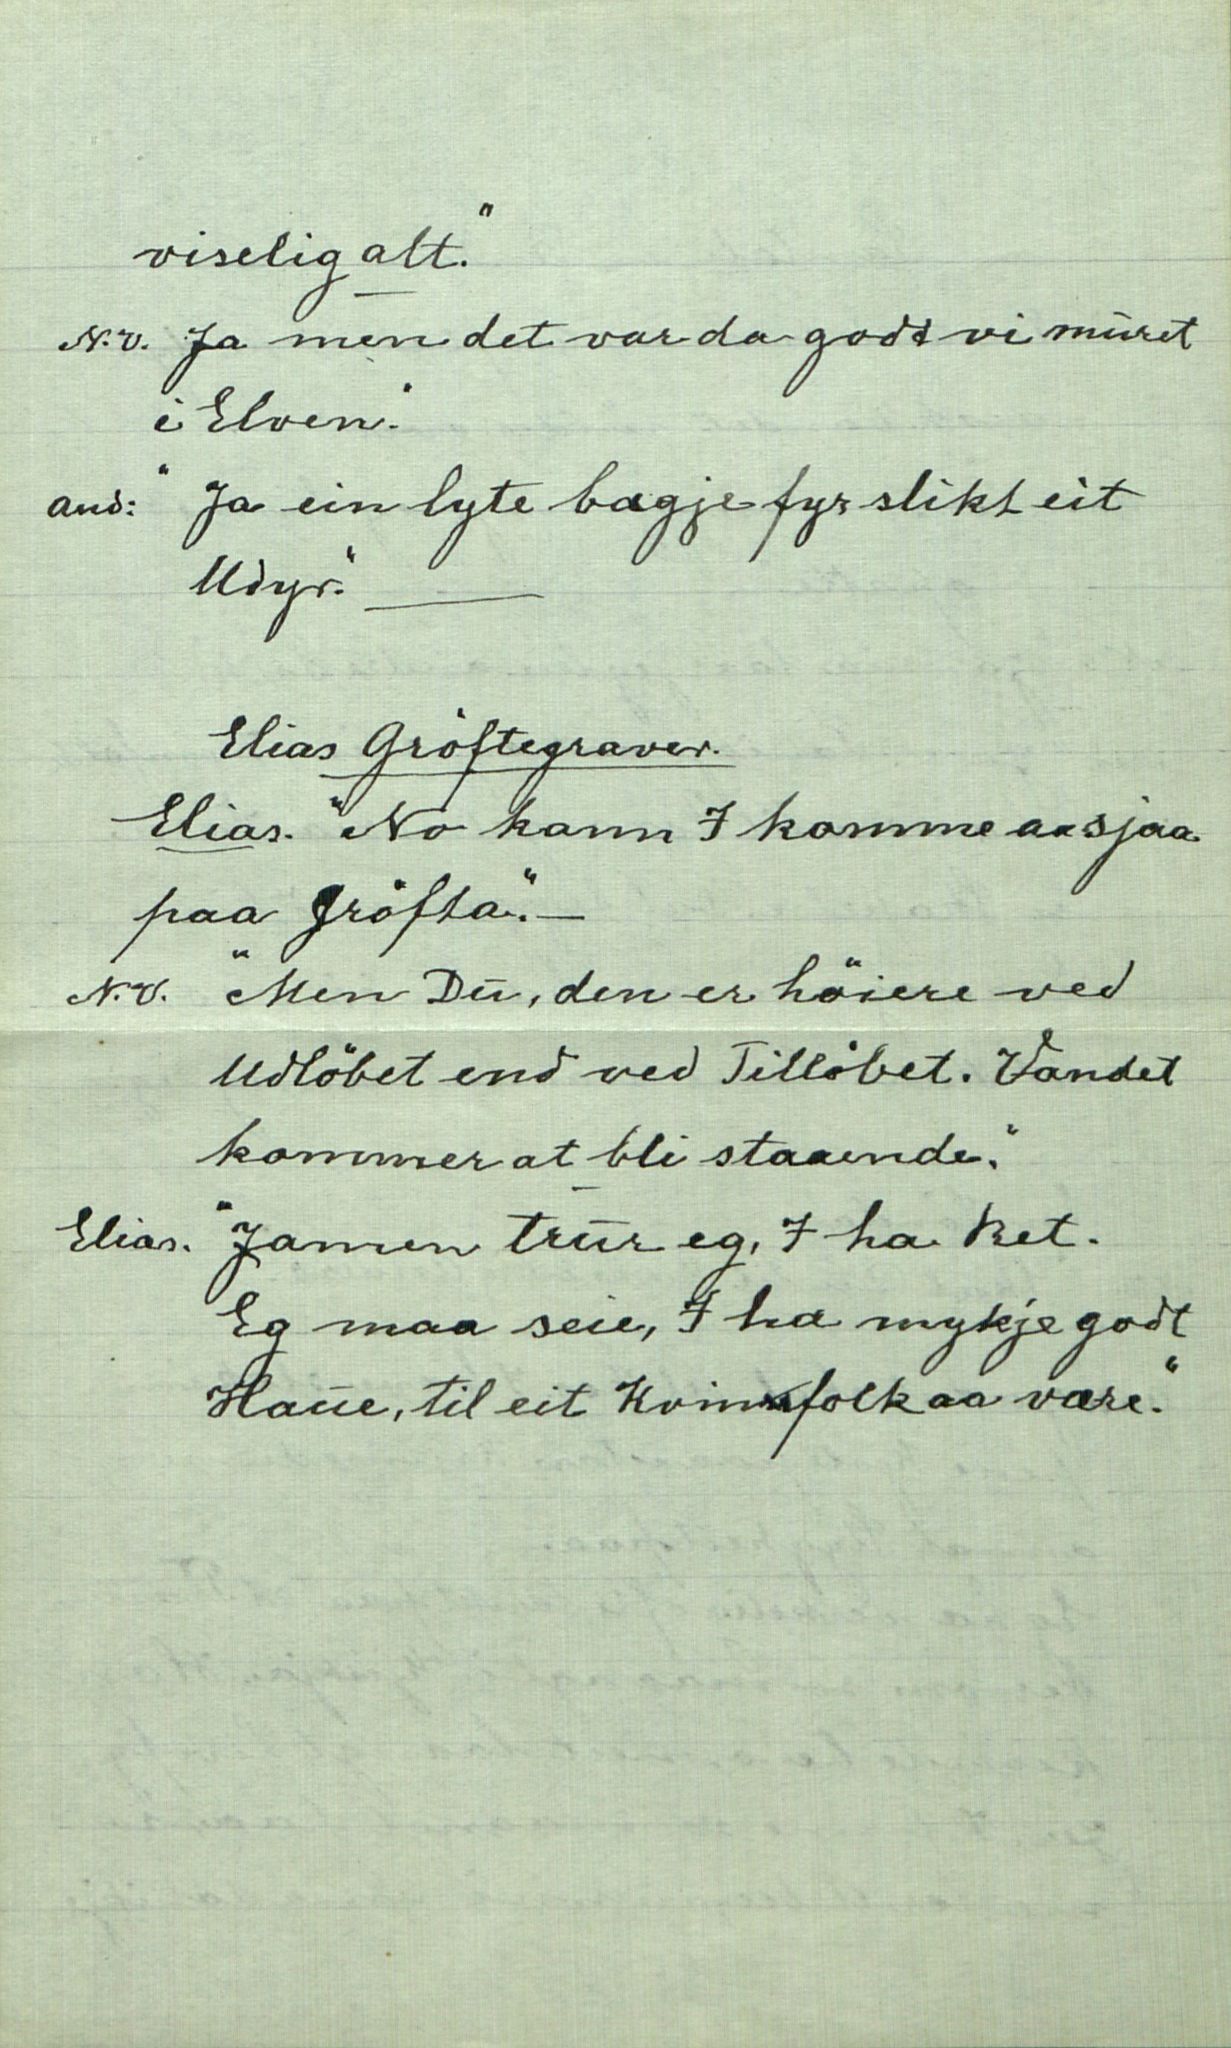 viselig alt."
N.V. Ja men det var da godt vi muret
i Elven."
And: "Ja ein lyte bægje fyr slikt eit
Udyr."
Elias Gröftegraver.
Elias. "No kann I komme aa sjaa
paa Gröfta." —
N.V. "Men Du, den er höiere ved
Udlöbet end ved Tillöbet. Vandet
kommer at bli staaende."
Elias. "Jamen trur eg, I ha Ret.
Eg maa seie, I ha mykje godt
Haue, til eit Kvinfolk aa være."